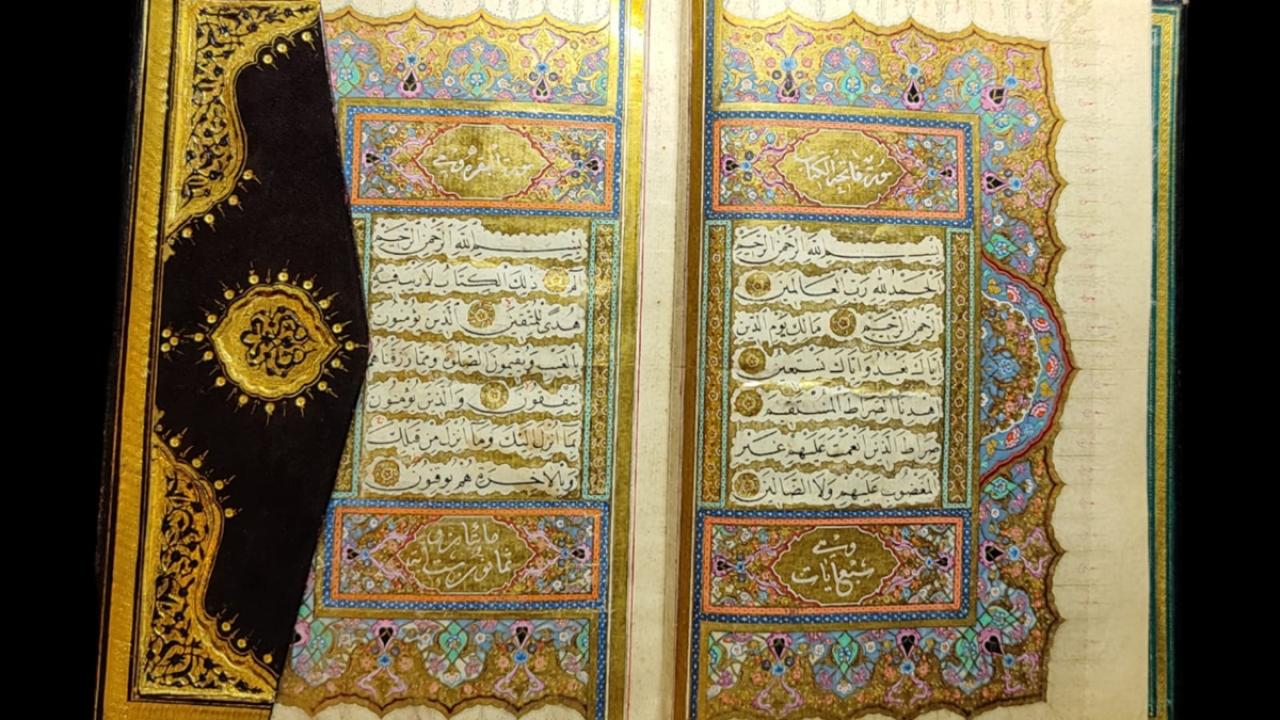 سورة فاتحة الكتاب
بِسْمِ اللّٰهِ الرَّحْمٰنِ الرَّحِيمِ
اَلْحَمْدُ لِلّٰهِ رَبِّ الْعَالَمِينَ
اَلرَّحْمٰنِ الرَّحِيمِ مَالِكِ يَوْمِ الدِّينِ
اِيَّاكَ نَعْبُدُ وَاِيَّاكَ نَسْتَعِينُ
اِهْدِنَا الصِّرَاطَ الْمُسْتَقِيمَ
صِرَاطَ الَّذِينَ اَنْعَمْتَ عَلَيْهِمْ غَيْرِ
الْمَغْضُوبِ عَلَيْهِمْ وَلَا الضَّالِّينَ
وهي
سبع آيات
سورة البقرة وهي
بِسْمِ اللّٰهِ الرَّحْمٰنِ الرَّحِيمِ
الٓمٓ ذٰلِكَ الْكِتَابُ لَا رَيْبَ فِيهِ
هُدًى لِلْمُتَّقِينَ اَلَّذِينَ يُؤْمِنُونَ
بِالْغَيْبِ وَيُقِيمُونَ الصَّلٰوةَ وَمِمَّا رَزَقْنَاهُمْ
يُنْفِقُونَ وَالَّذِينَ يُؤْمِنُونَ
بِمَا اُنْزِلَ اِلَيْكَ وَمَا اُنْزِلَ مِنْ قَبْلِكَ
وَبِالْاٰخِرَةِ هُمْ يُوقِنُونَ
مائتان و
ثمانون وست آية